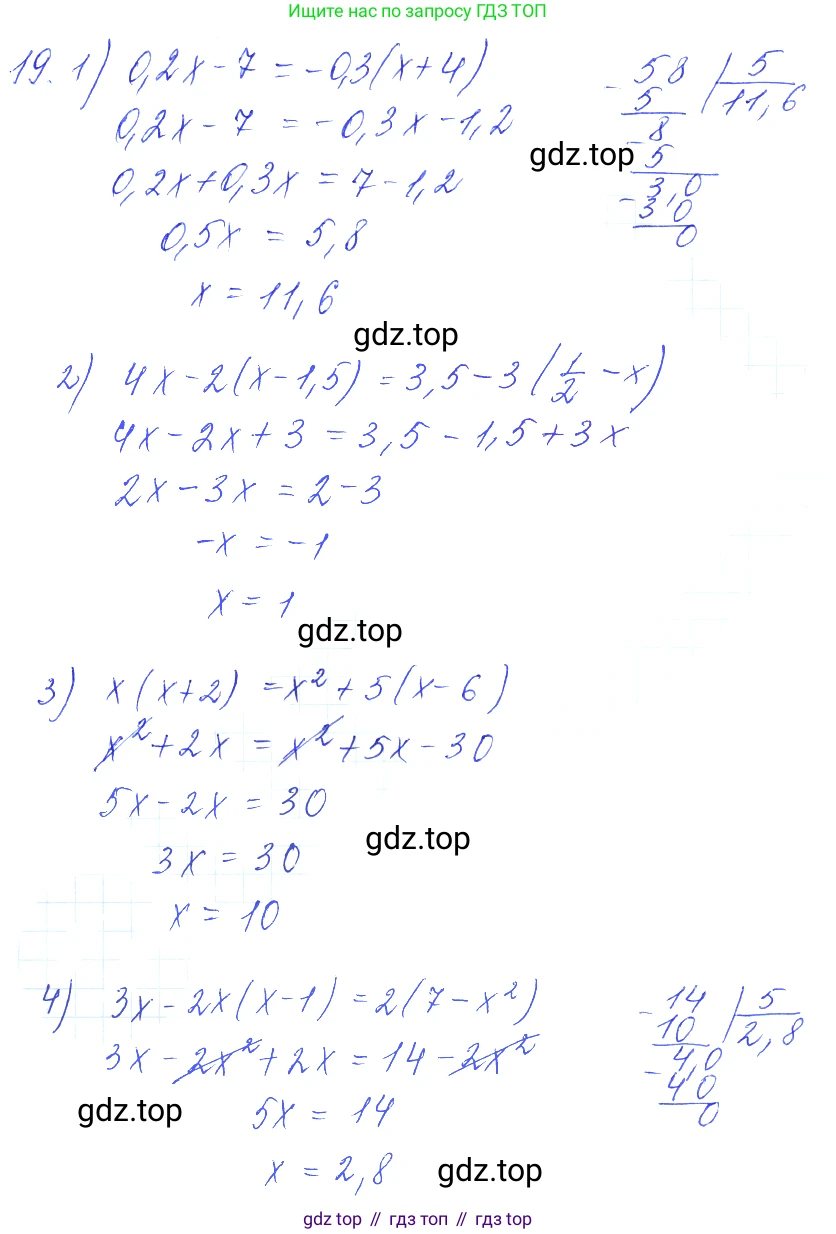 Ищите нас по запросу ГДЗ ТОП
19. 1) 0,2x - 7 = -0,3(x+4)
0,2x - 7 = -0,3x - 1,2
0,2x + 0,3x = 7 - 1,2
0,5x = 5,8
x = 11,6
- 58 | 5
5 | 11,6
- 8
5
- 3,0
3 0
0
gdz.top
gdz.top
2) 4x - 2(x - 1,5) = 3,5 - 3(1/2 - x)
4x - 2x + 3 = 3,5 - 1,5 + 3x
2x - 3x = 2 - 3
-x = -1
x = 1
gdz.top
3) x(x+2) = x² + 5(x - 6)
x² + 2x = x² + 5x - 30
5x - 2x = 30
3x = 30
x = 10
gdz.top
4) 3x - 2x(x-1) = 2(7 - x²)
3x - 2x² + 2x = 14 - 2x²
5x = 14
x = 2,8
- 14 | 5
10 | 2,8
- 4,0
4 0
0
gdz.top
gdz.top
gdz top // гдз топ // gdz top